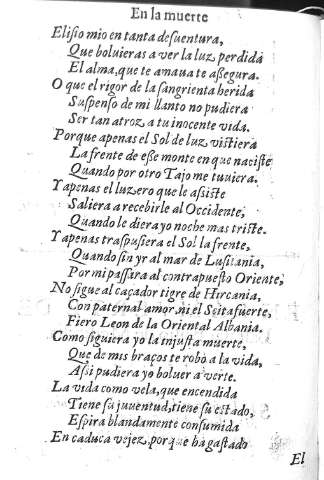 En la muerte
Elisio mio en tanta desuentura,
Que boluieras a ver la luz perdida
El alma, que te amaua te assegura.
O que el rigor de la sangrienta herida
Suspenso de mi llanto no pudiera
Ser tan atroz a tu inocente vida.
Porque apenas el Sol de luz vistiera
La frente de esse monte en que naciste
Quando por otro Tajo me tuuiera.
Y apenas el luzero que le assiste
Saliera a recebirle al Occidente,
Quando le diera yo noche mas triste.
Y apenas traspusiera el Sol la frente,
Quando sin yr al mar de Lusitania,
Por mi passara al contrapuesto Oriente,
No sigue al caçador tigre de Hircania,
Con paternal amor, ni el Scita fuerte,
Fiero Leon de la Oriental Albania.
Como siguiera yo la injusta muerte,
Que de mis braços te robò a la vida,
Assi pudiera yo boluer a verte.
La vida como vela, que encendida
Tiene su juuentud, tiene su estado,
Espira blandamente consumida
En caduca vejez, porque ha gastado
El